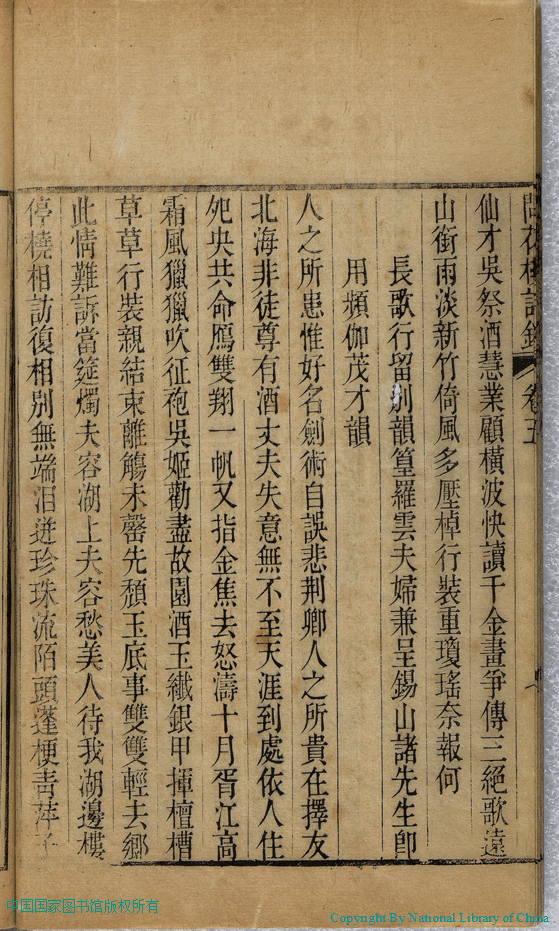 問花樓詩鈔 卷五
仙才吳祭酒慧業顧橫波快讀千金畫爭傳三絕歌遠
山銜雨淡新竹倚風多壓棹行裝重瓊瑤奈報何
長歌行留別韻篁羅雲夫婦兼呈錫山諸先生卽
用頻伽茂才韻
人之所患惟好名劍術自誤悲荆卿人之所貴在擇友
北海非徒尊有酒丈夫失意無不至天涯到處依人住
夗央共命鴈雙翔一帆又指金焦去怒濤十月胥江高
霜風獵獵吹征袍吳姬勸盡故園酒玉纖銀甲揮檀槽
草草行裝親結束離觴未罄先頹玉底事雙雙輕去鄉
此情難訴當筵燭夫容湖上夫容愁美人待我湖邊樓
停橈相訪復相別無端泪迸珍珠流陌頭蓬梗靑萍子
中国国家图书馆版权所有
Copyright By National Library of China